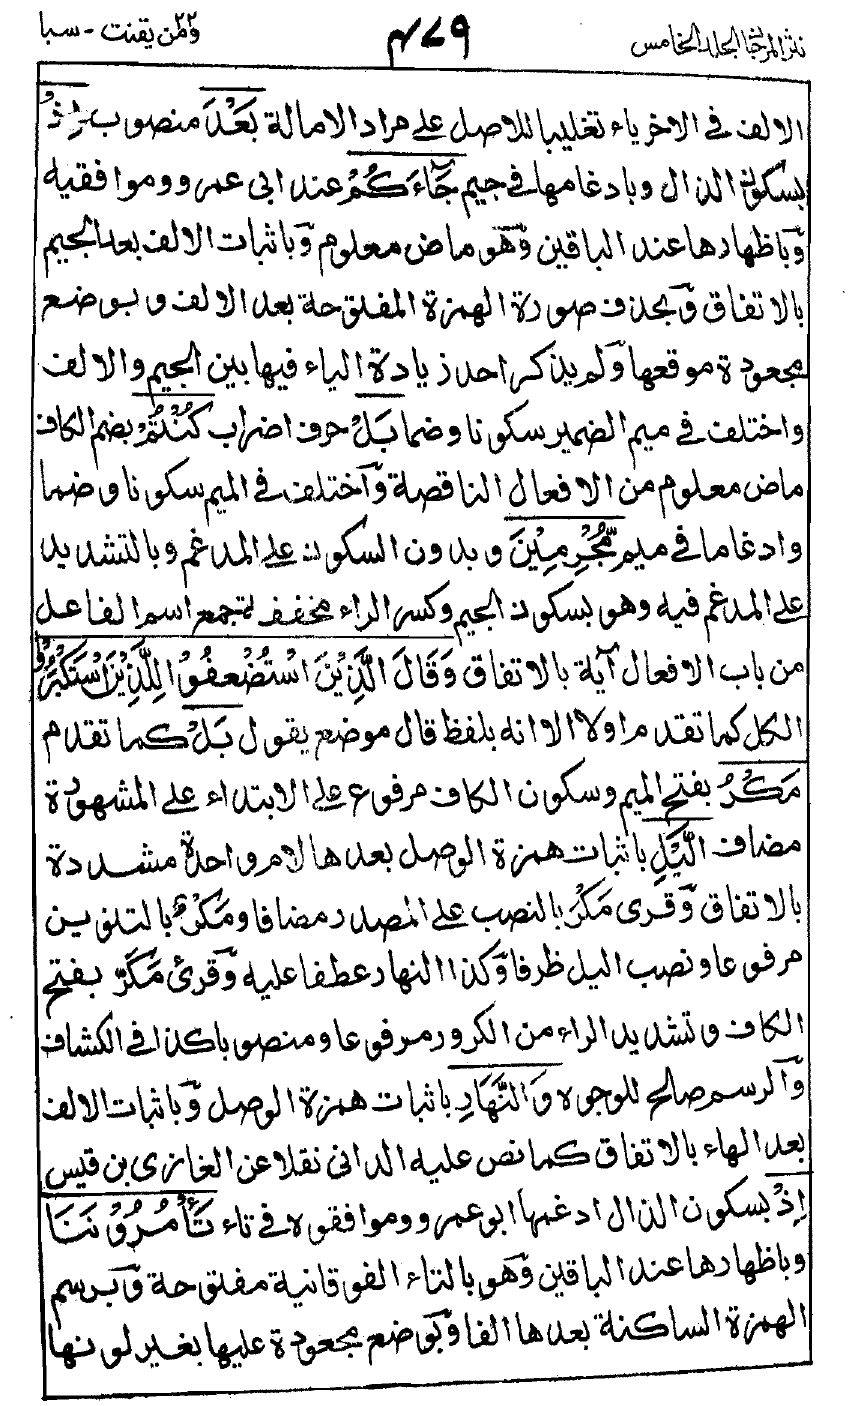 نثر المرجان المجلد الخامس ٤٧٩ ومن يقنت ٢٢ - سبا
الالف في الاخر ياء تغليبا للاصل على مراد الامالة بَعْدَ منصوب اِذْ
بسكون الذال وبادغامها في جيم جَآءَكُمْ عند ابى عمرو وموافقيه
وباظهارها عند الباقين وهو ماض معلوم وباثبات الالف بعد الجيم
بالاتفاق وبحذف صورة الهمزة المفتوحة بعد الالف وبوضع
مجعودة موقعها ولم يذكر احد زيادة الياء فيها بين الجيم والالف
واختلف في ميم الضمير سكونا وضما بَلْ حرف اضراب كُنْتُمْ بضم الكاف
ماض معلوم من الافعال الناقصة واختلف في الميم سكونا وضما
وادغاما في ميم مُّجْرِمِيْنَ وبدون السكون على المدغم وبالتشديد
على المدغم فيه وهو بسكون الجيم وكسر الراء مخففة جمع اسم الفاعل
من باب الافعال آية بالاتفاق وَقَالَ الَّذِيْنَ اسْتُضْعِفُوْا لِلَّذِيْنَ اسْتَكْبَرُوْا
الكل كما تقدم اولا الا انه بلفظ قال موضع يقول بَلْ كما تقدم
مَكْرُ بفتح الميم وسكون الكاف مرفوع على الابتداء على المشهورة
مضاف الَّيْلِ باثبات همزة الوصل بعدها لام واحدة مشددة
بالاتفاق وقرى مَكْرَ بالنصب على المصدر مضافا ومَكْرٌ بالتنوين
مرفوعا ونصب اليل ظرفا وكذا النهار عطفا عليه وقرئ مَكَرّ بفتح
الكاف وتشديد الراء من الكرور مرفوعا ومنصوبا كذا في الكشاف
والرسم صالح للوجوه وَالنَّهَارِ باثبات همزة الوصل وباثبات الالف
بعد الهاء بالاتفاق كما نص عليه الدانى نقلا عن الغازى بن قيس
اِذْ بسكون الذال ادغمها ابو عمرو وموافقوه في تاء تَأْمُرُوْنَنَا
وباظهارها عند الباقين وهو بالتاء الفوقانية مفتوحة وبرسم
الهمزة الساكنة بعدها الفا وبوضع مجعودة عليها بغير لونها